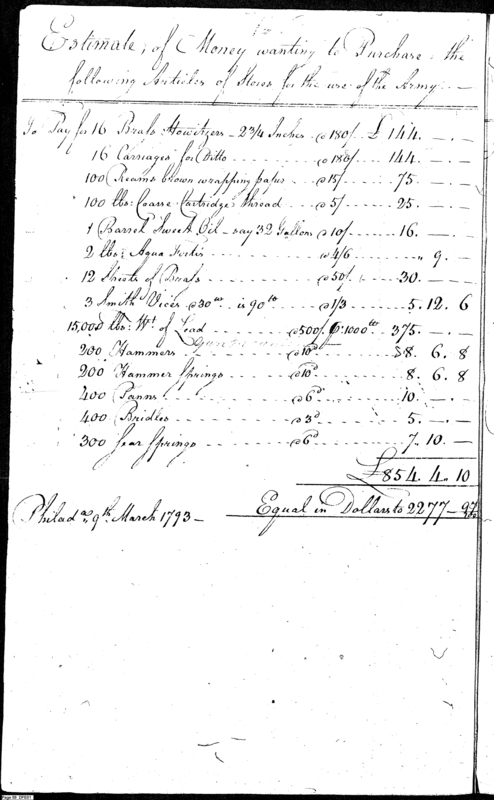 Estimate, of Money wanting to Purchase the
following Articles of Stores for the use of the Army. —
To Pay for 16 Brass Howitzers - 2 3/4 Inches @ 180/. £ 144. — . —
16 Carriages for Ditto @ 180/ 144. — . —
100 Reams brown wrapping paper @ 15/ 75. — . —
100 lbs: Coarse Cartridge thread @ 5/ 25. — . —
1 Barrel Sweet Oil - say 32 Gallons @ 10/ 16. — . —
2 lbs: Aqua Fortis @ 4/6 " 9. —
12 Sheets of Brass @ 50/ 30. — . —
3 Smith Vices @ 30 lb is 90 lb @ 1/3 5. 12. 6
15,000 lbs: Wt. of Lead @ 500/. 1000 lb 375. — . —
200 Hammers @ 10d 8. 6. 8
200 Hammer Springs @ 10d 8. 6. 8
400 Panns @ 6d 10. — . —
400 Bridles @ 3d 5. — . —
300 Sear Springs @ 6d 7. 10. —
£854. 4. 10
Philada. 9th. March 1793 — Equal in Dollars to 2277 - 97